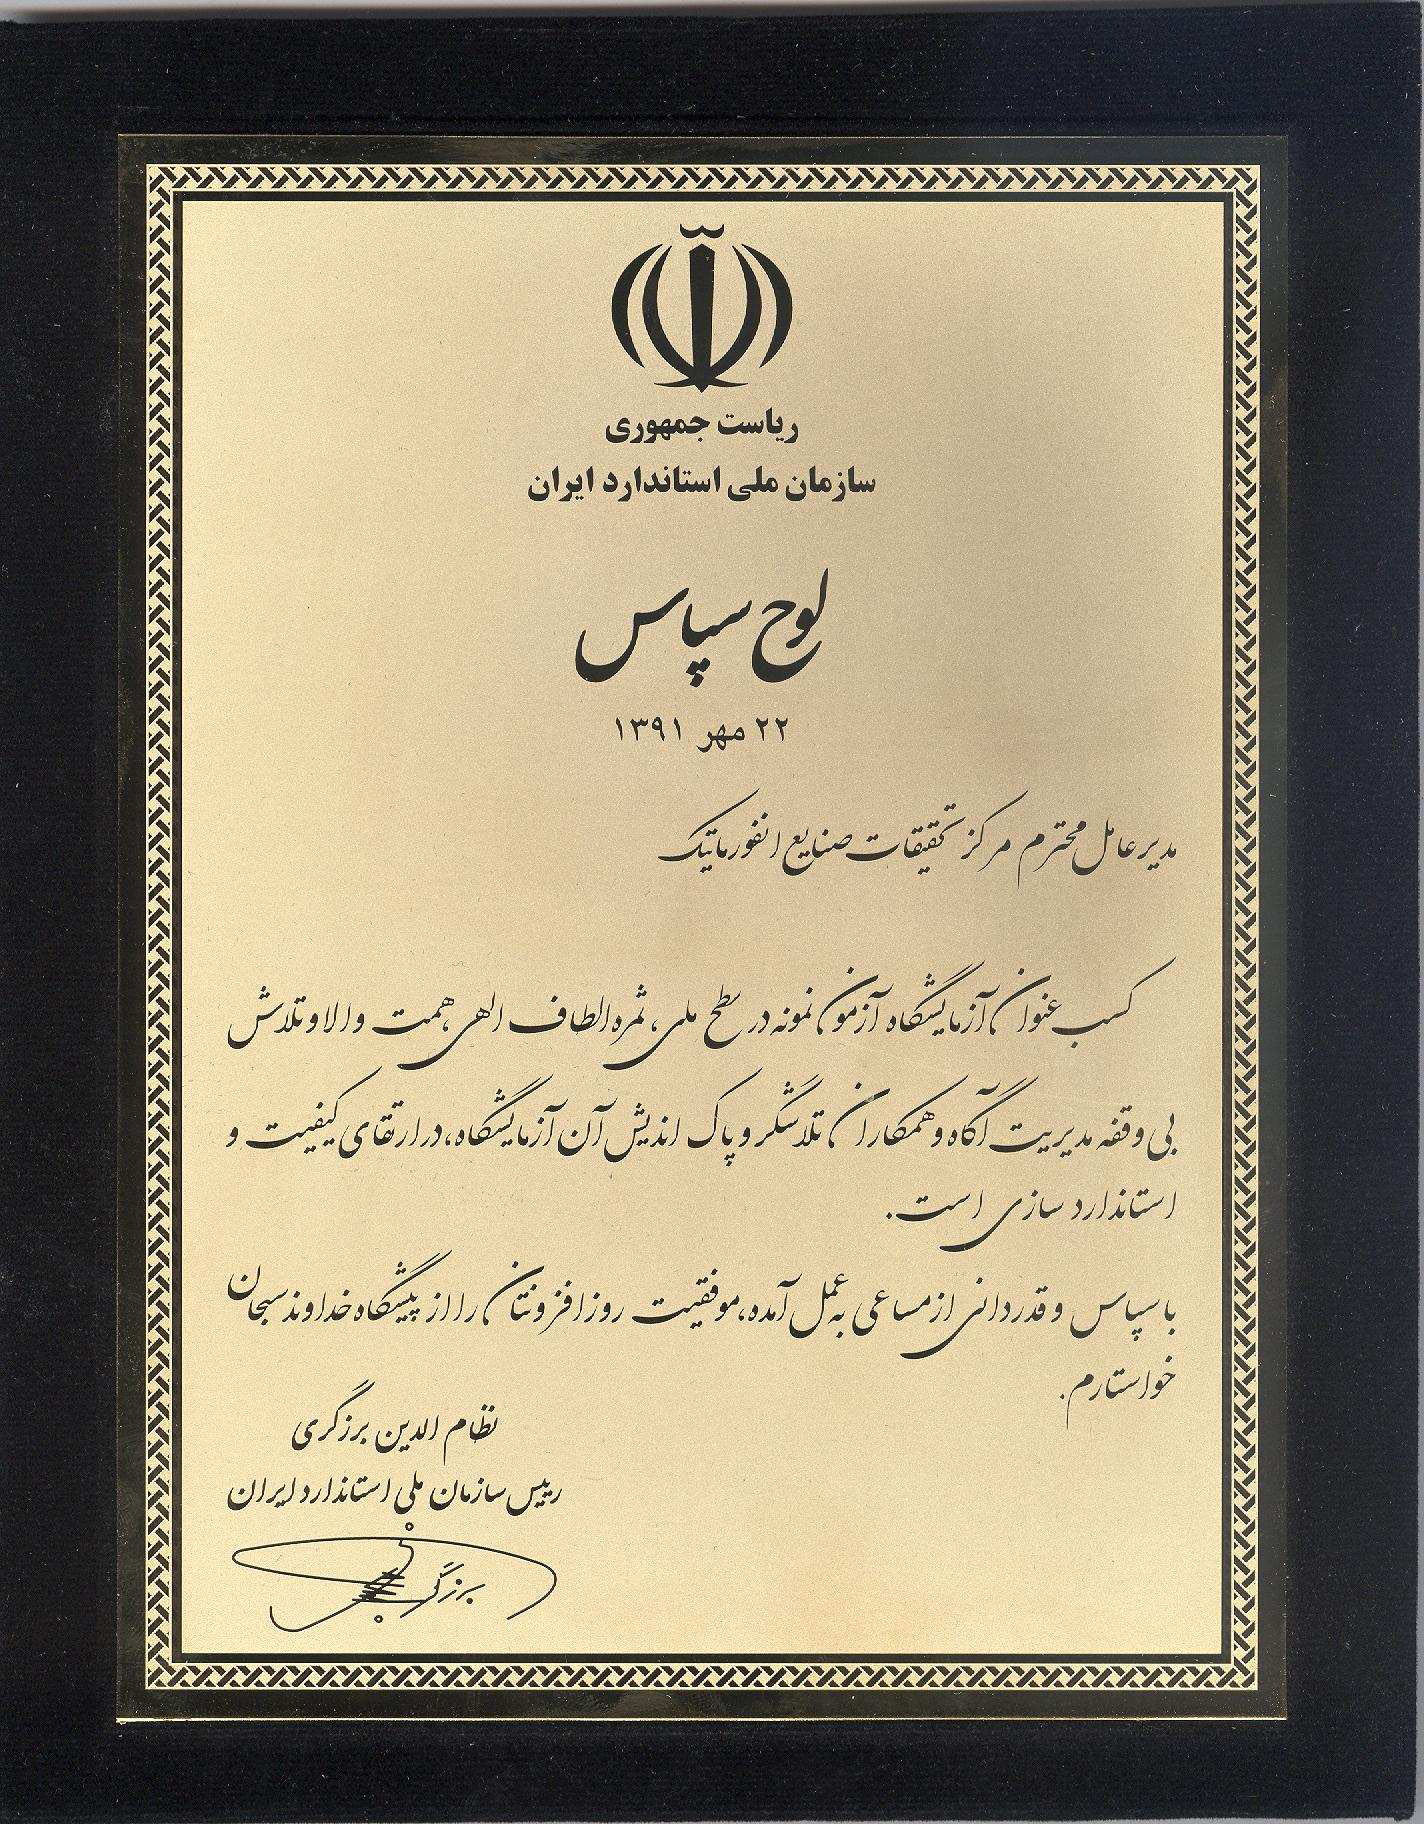 ریاست جمهوری
سازمان ملی استاندارد ایران
لوح سپاس
۲۲ مهر ۱۳۹۱
مدیر عامل محترم مرکز تحقیقات صنایع انفورماتیک
کسب عنوان آزمایشگاه آزمون نمونه در سطح ملی، ثمره الطاف الهی، همت والا و تلاش
بی وقفه مدیریت آگاه و همکاران تلاشگر و پاک اندیش آن آزمایشگاه، در ارتقای کیفیت و
استاندارد سازی است.
با سپاس و قدردانی از مساعی به عمل آمده، موفقیت روزافزونتان را از پیشگاه خداوند سبحان
خواستارم.
نظام الدین برزگری
رییس سازمان ملی استاندارد ایران